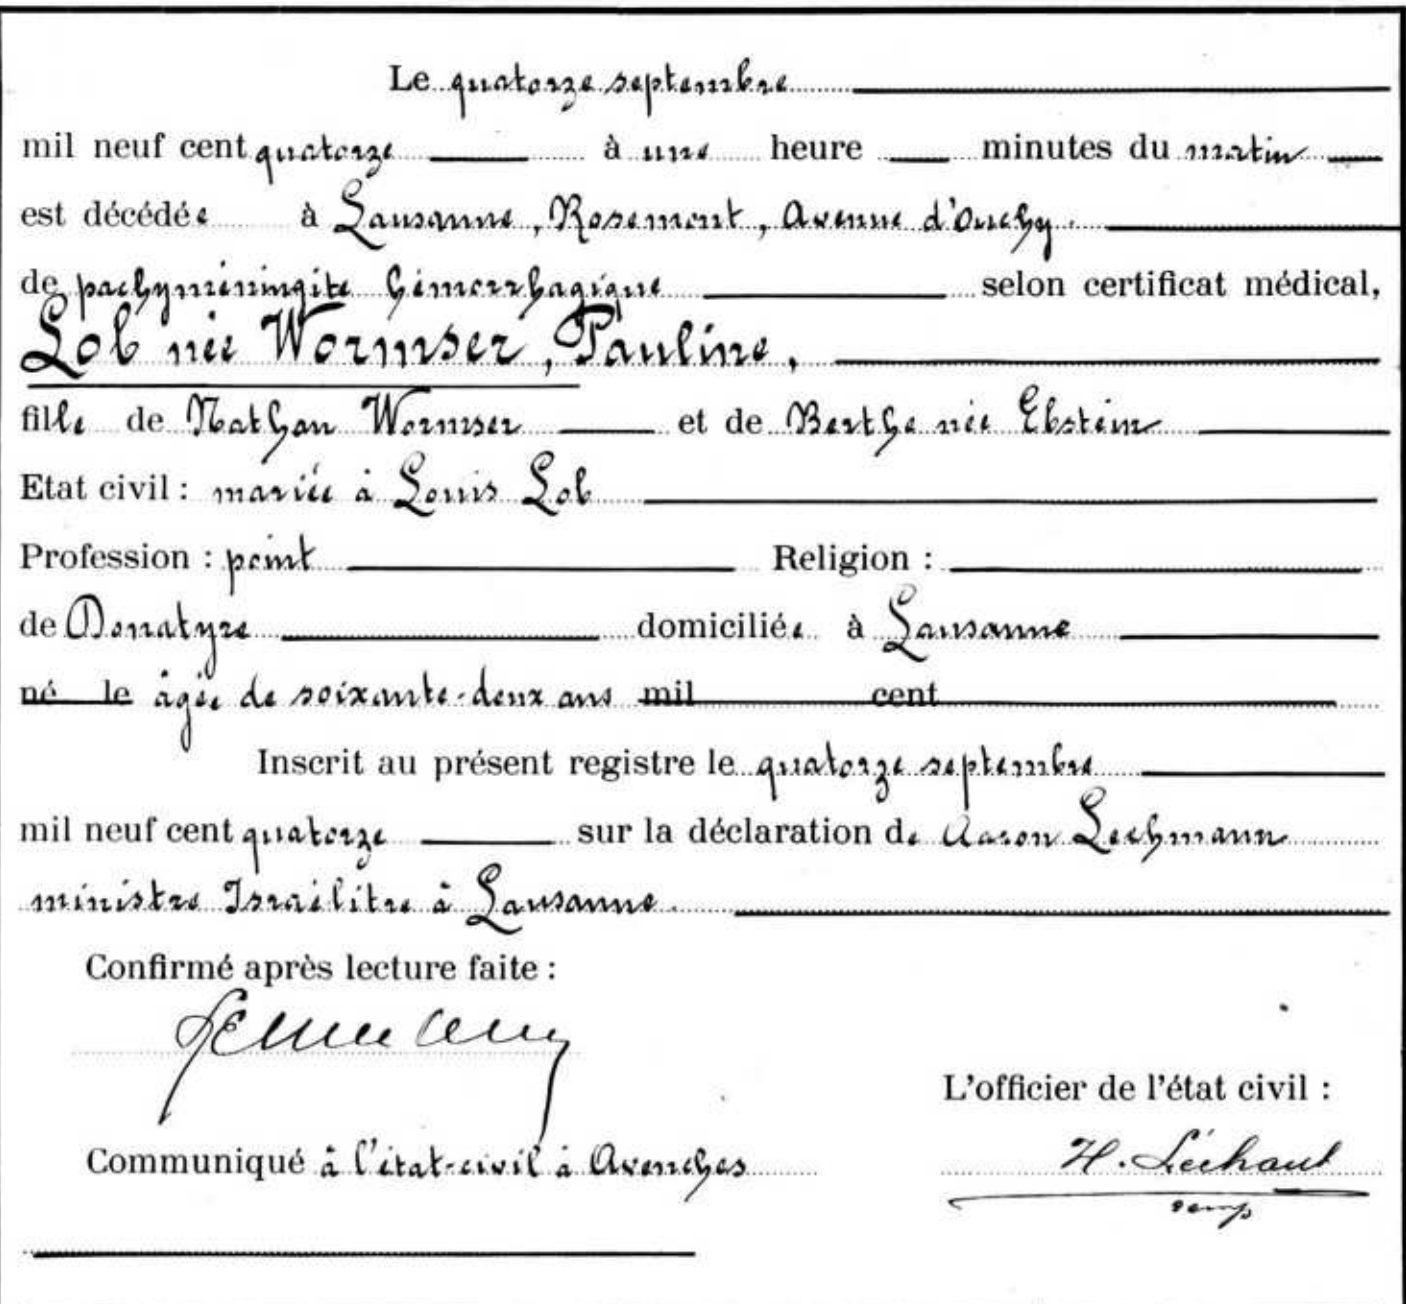 Le quatorze septembre
mil neuf cent quatorze à une heure minutes du matin
est décédée à Lausanne, Rosemont, Avenue d'Ouchy.
de pachyméningite hémorrhagique selon certificat médical,
Lob née Wormser, Pauline,
fille de Nathan Wormser et de Berthe née Ebstein
Etat civil : mariée à Louis Lob
Profession : point Religion :
de Donatyre domiciliée à Lausanne
né le âgée de soixante-deux ans mil cent
Inscrit au présent registre le quatorze septembre
mil neuf cent quatorze sur la déclaration de Aaron Lechmann
ministre Israélitre à Lausanne.
Confirmé après lecture faite :
L'officier de l'état civil :
Communiqué à l'état-civil à Avenches
H. Léchaut